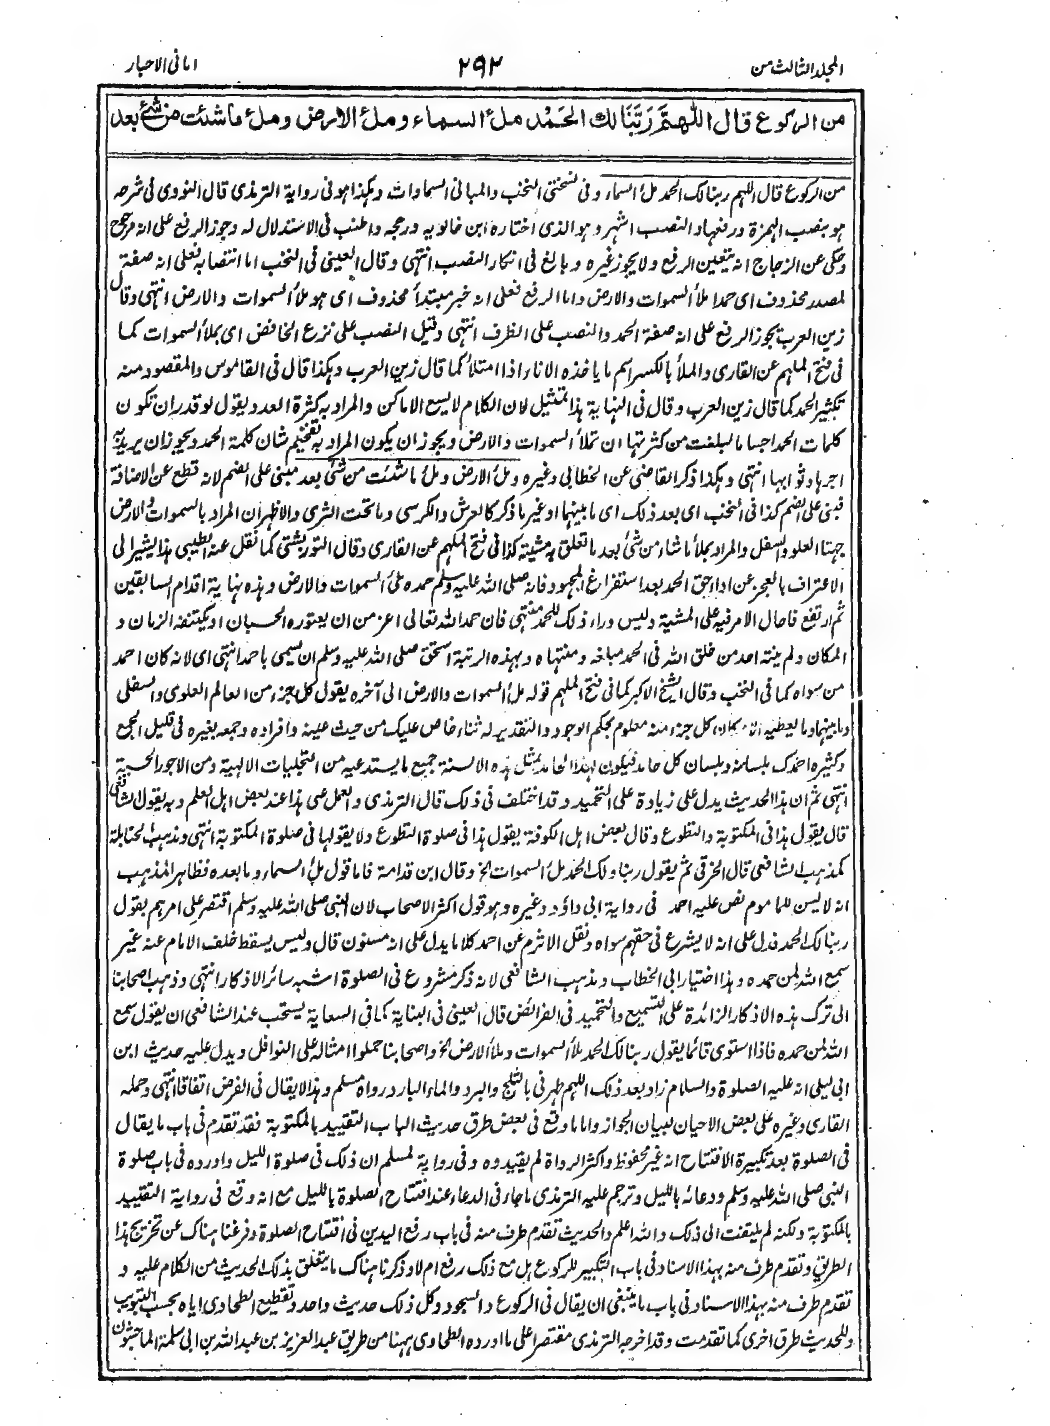 المجلد الثالث من
٢٩٢
امانی الاحبار
من الركوع قال اللهم ربنا لك الحمد ملأ السماء وملأ الارض وملأ ما شئت من شئ بعد
من الركوع قال اللهم ربنا لك الحمد ملأ السماء وفی نسختی النخب والمبانی السماوات وہکذا ہو فی روایۃ الترمذی قال النووی فی شرحہ
ہو بنصب الہمزۃ ورفعہا والنصب اشہر وہو الذی اختارہ ابن خالویہ ورجحہ واطنب فی الاستدلال لہ وجوز الرفع علی انہ مرجح
وحکی عن الزجاج انہ یتعین الرفع ولا یجوز غیرہ وبالغ فی انکار النصب انتہی وقال العینی فی النخب اما انتصابہ فعلی انہ صفۃ
لمصدر محذوف ای حمدا ملأ السموات والارض واما الرفع فعلی انہ خبر مبتدأ محذوف ای ہو ملأ السموات والارض انتہی وقال
زین العرب یجوز الرفع علی انہ صفۃ الحمد والنصب علی الظرف انتہی وقیل النصب علی نزع الخافض ای بملأ السموات کما
فی فتح الملہم عن القاری والملأ بالکسر اسم ما یاخذہ الاناء اذا امتلأ کما قال زین العرب وہکذا قال فی القاموس والمقصود منہ
تکثیر الحمد کما قال زین العرب وقال فی النہایۃ ہذا تمثیل لان الکلام لا یسع الاماکن والمراد بہ کثرۃ العدد یقول لو قدر ان تکون
کلمات الحمد اجساما لبلغت من کثرتہا ان تملأ السموات والارض ویجوز ان یکون المراد بہ تفخیم شان کلمۃ الحمد ویجوز ان یرید بہ
اجرہا وثوابہا انتہی وہکذا ذکر القاضی عن الخطابی وغیرہ وملأ الارض وملأ ما شئت من شئ بعد مبنی علی الضم لانہ قطع عن الاضافۃ
فبنی علی الضم کذا فی النخب ای بعد ذلک ای ما بینہما او غیر ما ذکر کالعرش والکرسی وما تحت الثری والاظہر ان المراد بالسموات والارض
جہتا العلو والسفل والمراد بملأ ما شاء من شئ بعد ما تعلق بہ مشیتہ کذا فی فتح الملہم عن القاری وقال التوربشتی کما نقل عنہ الطیبی ہذا یشیر الی
الاعتراف بالعجز عن اداء حق الحمد بعد استفراغ المجہود فانہ صلی اللہ علیہ وسلم حمدہ ملأ السموات والارض وہذہ نہایۃ اقدام السابقین
ثم ارتفع فاحال الامر فیہ علی المشیۃ ولیس وراء ذلک للحمد منتہی فان حمد اللہ تعالی اعز من ان یعتورہ الحسبان او یکتنفہ الزمان و
المکان ولم ینتہ احد من خلق اللہ فی الحمد مبلغہ ومنتہاہ وبہذہ الرتبۃ استحق صلی اللہ علیہ وسلم ان یسمی باحمد انتہی ای لانہ کان احمد
من سواہ کما فی النخب وقال الشیخ الاکبر کما فی فتح الملہم قولہ ملأ السموات والارض الی آخرہ یقول کل جزء من العالم العلوی والسفلی
وما بینہما وما یعطیہ الامکان کل جزء منہ معلوم بحکم الوجود والتقدیر لہ ثناء خاص علیک من حیث عینہ وافرادہ وجمعہ بغیرہ فی قلیل الجمع
وکثیرہ احمدک بلسانہ وبلسان کل حامد فیکون لہذا الحامد بمثل ہذہ الالسنۃ جمیع ما یستدعیہ من التجلیات الالہیۃ ومن الاجور الحسیۃ
انتہی ثم ان ہذا الحدیث یدل علی زیادۃ علی التحمید وقد اختلف فی ذلک قال الترمذی والعمل علی ہذا عند بعض اہل العلم وبہ یقول الشافعی
قال یقول ہذا فی المکتوبۃ والتطوع وقال بعض اہل الکوفۃ یقول ہذا فی صلوۃ التطوع ولا یقولہا فی صلوۃ المکتوبۃ انتہی ومذہب الحنابلۃ
کمذہب الشافعی قال الخرقی ثم یقول ربنا ولک الحمد ملأ السموات الخ وقال ابن قدامۃ فاما قول ملأ السماء وما بعدہ فظاہر المذہب
انہ لا یسن للماموم نص علیہ احمد فی روایۃ ابی داؤد وغیرہ وہو قول اکثر الاصحاب لان النبی صلی اللہ علیہ وسلم اقتصر علی امرہم بقول
ربنا لک الحمد فدل علی انہ لا یشرع فی حقہم سواہ ونقل الاثرم عن احمد کلاما یدل علی انہ مسنون قال ولیس یسقط خلف الامام عنہ غیر
سمع اللہ لمن حمدہ وہذا اختیار ابی الخطاب ومذہب الشافعی لانہ ذکر مشروع فی الصلوۃ اشبہ سائر الاذکار انتہی وذہب اصحابنا
الی ترک ہذہ الاذکار الزائدۃ علی التسمیع والتحمید فی الفرائض قال العینی فی البنایۃ کما فی السعایۃ یستحب عند الشافعی ان یقول سمع
اللہ لمن حمدہ فاذا استوی قائما یقول ربنا لک الحمد ملأ السموات وملأ الارض الخ واصحابنا حملوا امثالہ علی النوافل ویدل علیہ حدیث ابن
ابی لیلی انہ علیہ الصلوۃ والسلام زاد بعد ذلک اللہم طہرنی بالثلج والبرد والماء البارد رواہ مسلم وہذا لا یقال فی الفرض اتفاقا انتہی وحملہ
القاری وغیرہ علی بعض الاحیان لبیان الجواز واما ما وقع فی بعض طرق حدیث الباب التقیید بالمکتوبۃ فقد تقدم فی باب ما یقال
فی الصلوۃ بعد تکبیرۃ الافتتاح انہ غیر محفوظ واکثر الرواۃ لم یقیدوہ وفی روایۃ لمسلم ان ذلک فی صلوۃ اللیل واوردہ فی باب صلوۃ
النبی صلی اللہ علیہ وسلم ودعائہ باللیل وترجم علیہ الترمذی ما جاء فی الدعاء عند افتتاح الصلوۃ باللیل مع انہ وقع فی روایۃ التقیید
بالمکتوبۃ ولکنہ لم یلتفت الی ذلک واللہ اعلم والحدیث تقدم طرف منہ فی باب رفع الیدین فی افتتاح الصلوۃ وفرغنا ہناک عن تخریج ہذا
الطریق وتقدم طرف منہ بہذا الاسناد فی باب التکبیر للرکوع ہل مع ذلک رفع ام لا وذکرنا ہناک ما یتعلق بذلک الحدیث من الکلام علیہ و
تقدم طرف منہ بہذا الاسناد فی باب ما ینبغی ان یقال فی الرکوع والسجود وکل ذلک حدیث واحد وتقطیع الطحاوی ایاہ بحسب التبویب
وللحدیث طرق اخری کما تقدمت وقد اخرجہ الترمذی مقتصرا علی ما اوردہ الطحاوی ہہنا من طریق عبد العزیز بن عبد اللہ بن ابی سلمۃ الماجشون